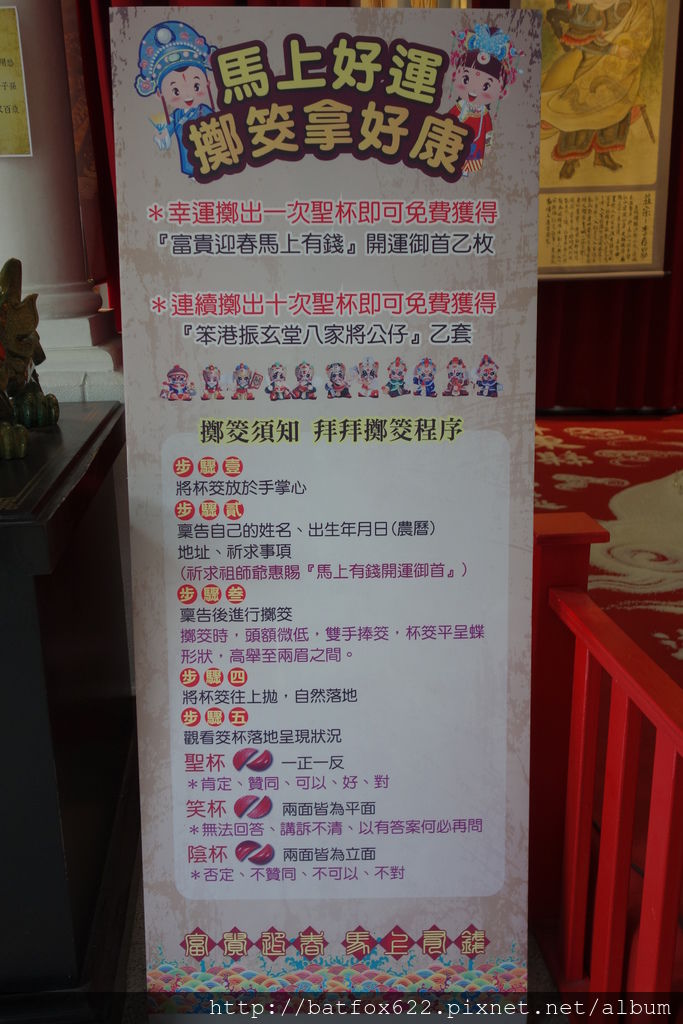 馬上好運
擲筊拿好康
＊幸運擲出一次聖杯即可免費獲得
『富貴迎春馬上有錢』開運御首乙枚
＊連續擲出十次聖杯即可免費獲得
『笨港振玄堂八家將公仔』乙套
擲筊須知 拜拜擲筊程序
步驟壹
將杯筊放於手掌心
步驟貳
稟告自己的姓名、出生年月日(農曆)
地址、祈求事項
(祈求祖師爺惠賜『馬上有錢開運御首』)
步驟叁
稟告後進行擲筊
擲筊時，頭額微低，雙手捧筊，杯筊平呈蝶
形狀，高舉至兩眉之間。
步驟四
將杯筊往上拋，自然落地
步驟五
觀看筊杯落地呈現狀況
聖杯 一正一反
＊肯定、贊同、可以、好、對
笑杯 兩面皆為平面
＊無法回答、講訴不清、以有答案何必再問
陰杯 兩面皆為立面
＊否定、不贊同、不可以、不對
富貴迎春馬上有錢
http://batfox622.pixnet.net/album